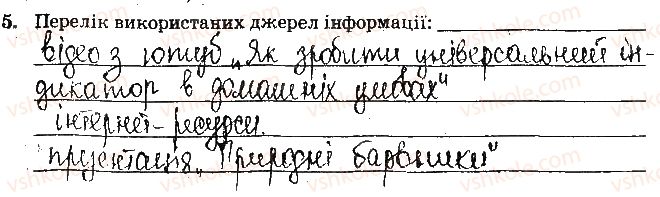 5. Перелік використаних джерел інформації:
відео з ютуб „Як зробити універсальний ін-
дикатор в домашніх умовах"
інтернет-ресурси.
презентація „Природні барвники"